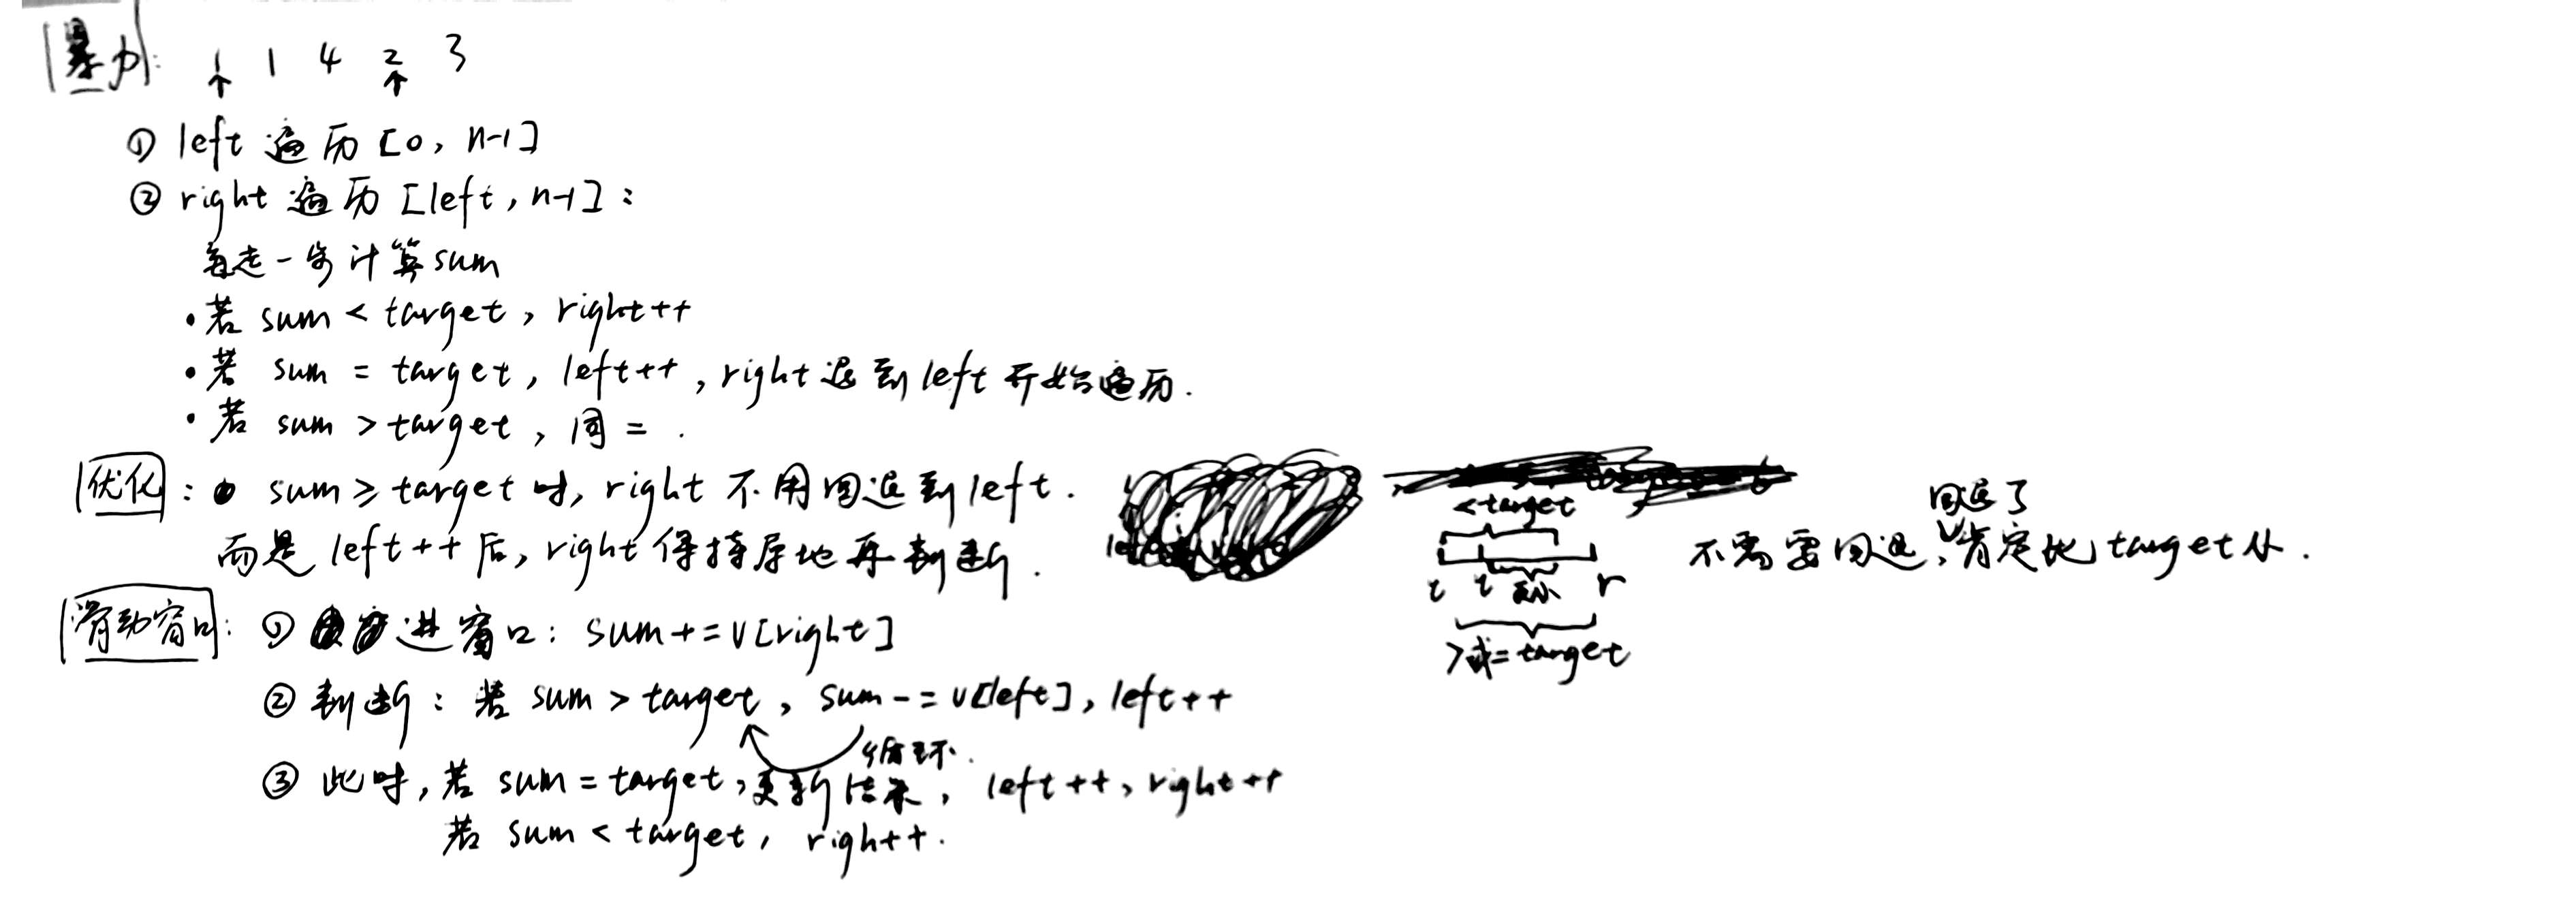 暴力: 1 1 4 2 3
① left 遍历 [0, n-1]
② right 遍历 [left, n-1]:
每走一步计算sum
·若 sum < target, right++
·若 sum = target, left++, right 退到 left 开始遍历.
·若 sum > target, 同 = .
优化: sum ≥ target 时, right 不用回退到 left.
而是 left++ 后, right 保持原地再判断.
<target
l l 更小 r
>或=target
不需要回退, 回退了肯定比 target 小.
滑动窗口: ① 进窗口: sum += v[right]
② 判断: 若 sum > target, sum -= v[left], left++
循环.
③ 此时, 若 sum = target, 更新结果, left++, right++
若 sum < target, right++.